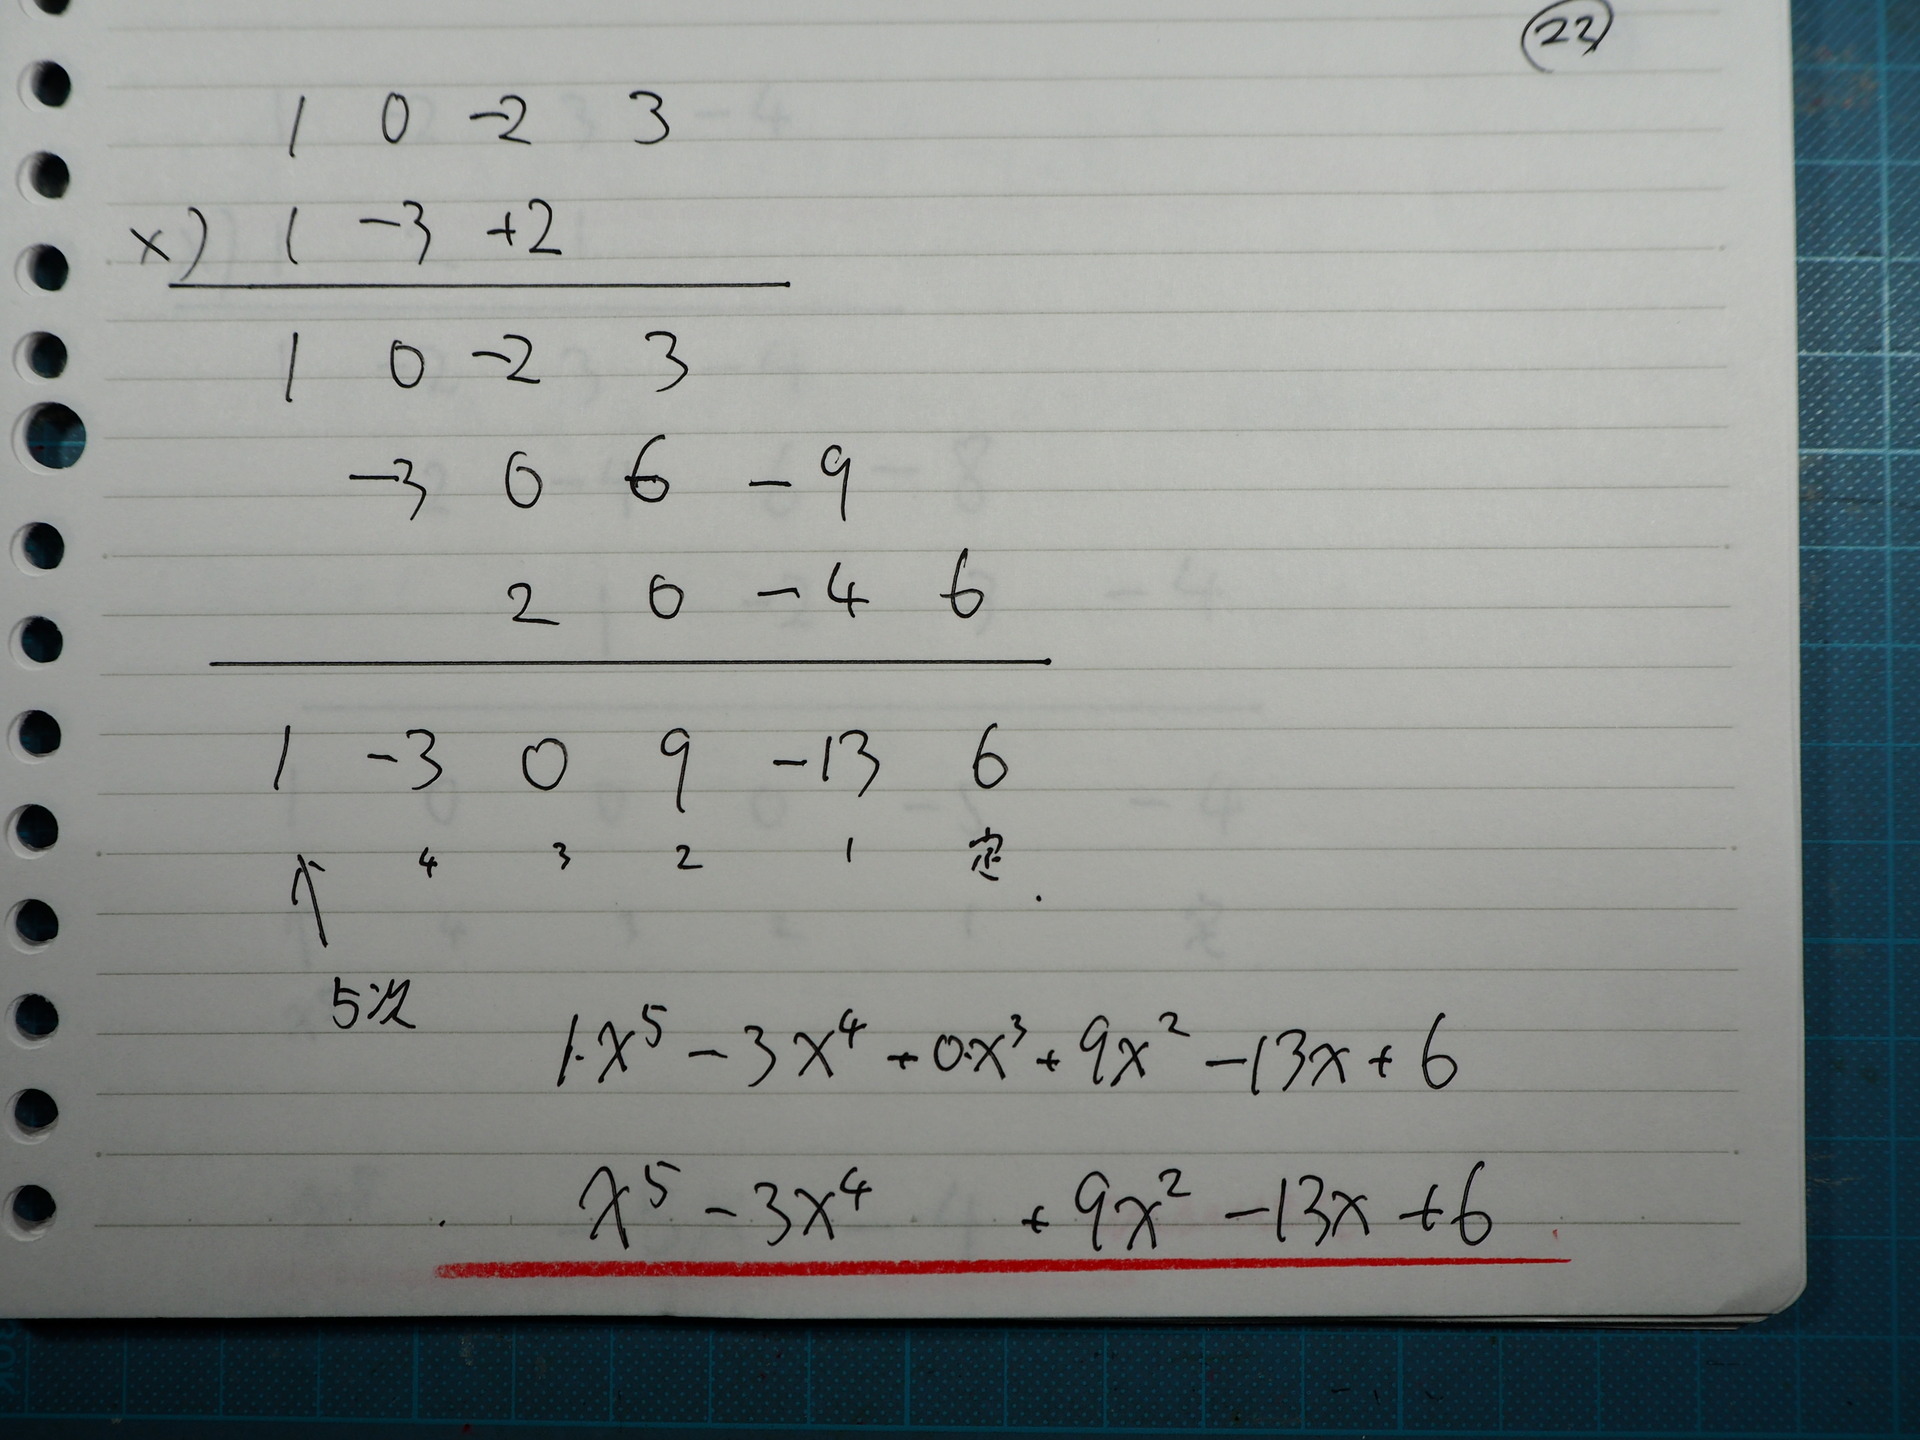 22
1 0 -2 3
×) 1 -3 +2
1 0 -2 3
-3 0 6 -9
2 0 -4 6
1 -3 0 9 -13 6
4 3 2 1 定
↑
5次
1·x⁵ - 3x⁴ + 0·x³ + 9x² - 13x + 6
x⁵ - 3x⁴ + 9x² - 13x + 6